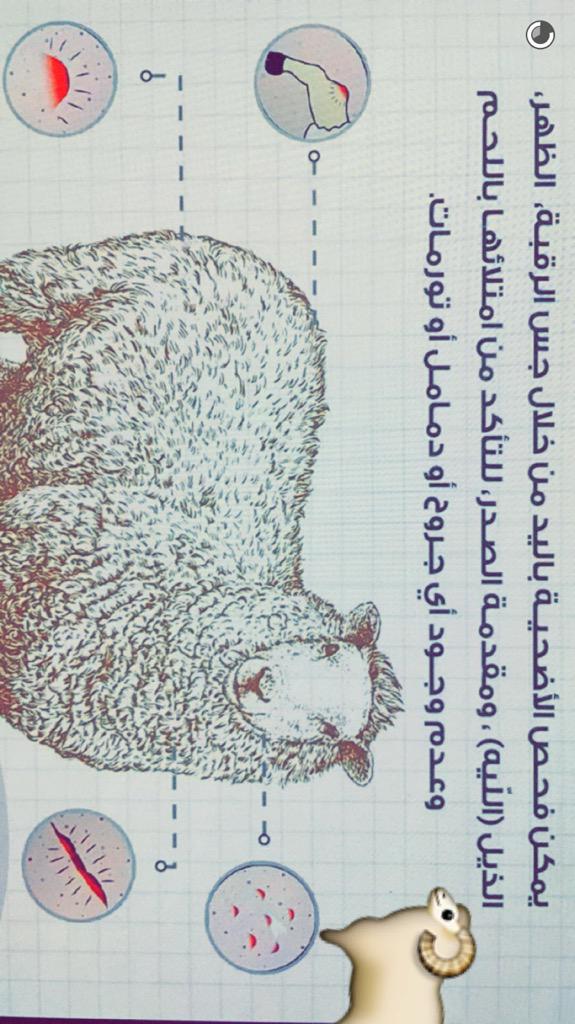 يمكن فحص الأضحية باليد من خلال جس الرقبة، الظهر،
الذيل (اللّيه)، ومقدمة الصدر، للتأكد من امتلائها باللحم
وعدم وجود أي جروح أو دمامل أو تورمات.